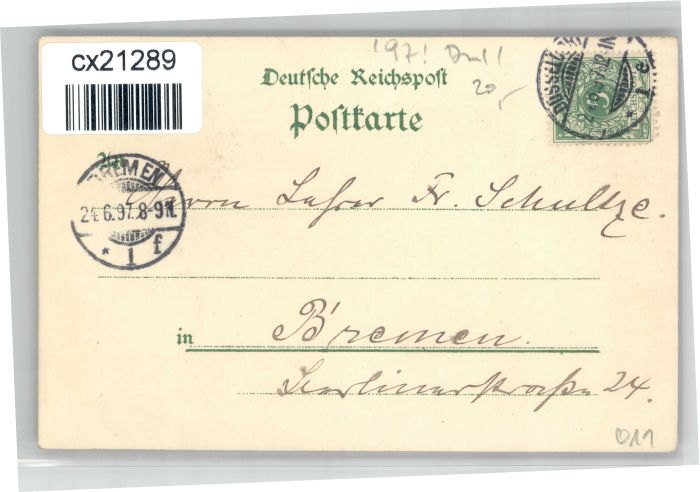 cx21289
'97! Dull
20,-
Deutsche Reichspost
Postkarte
An
BREMEN
24.6.97. 8-9 N.
* 1 f
Herrn Lehrer Fr. Schultze.
in Bremen.
Berlinerstraße 24.
011